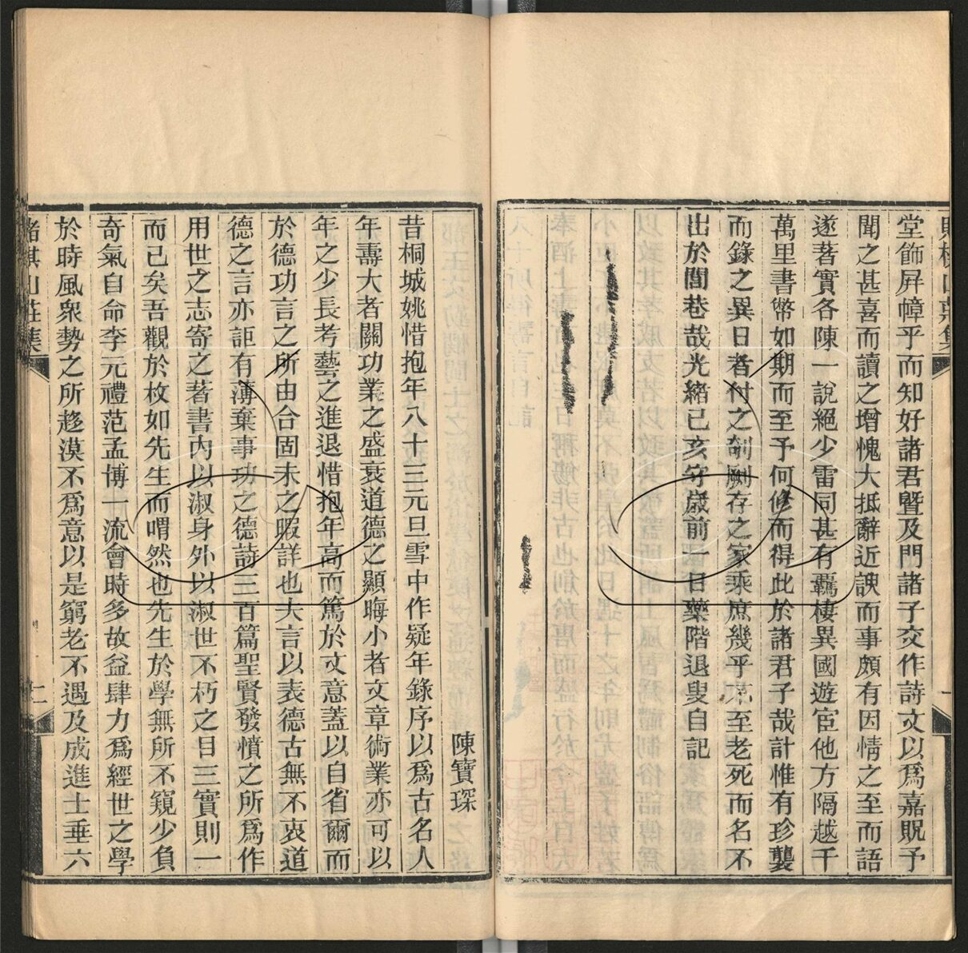 堂飾屏幛乎而知好諸君曁及門諸子交作詩文以爲嘉貺予
聞之甚喜而讀之增愧大抵辭近諛而事頗有因情之至而語
遂著實各陳一說絕少雷同甚有羈棲異國遊宦他方隔越千
萬里書幣如期而至予何修而得此於諸君子哉計惟有珍襲
而錄之異日者付之剞劂存之家乘庶幾乎不至老死而名不
出於閭巷哉光緒己亥守歲前一日藥階退叟自記
陳寶琛
昔桐城姚惜抱年八十三元旦雪中作疑年錄序以爲古名人
年壽大者關功業之盛衰道德之顯晦小者文章術業亦可以
年之少長考藝之進退惜抱年高而篤於文意蓋以自省爾而
於德功言之所由合固未之暇詳也夫言以表德古無不衷道
德之言亦詎有薄棄事功之德詩三百篇聖賢發憤之所爲作
用世之志寄之著書內以淑身外以淑世不朽之目三實則一
而已矣吾觀於枚如先生而喟然也先生於學無所不窺少負
奇氣自命李元禮范孟博一流會時多故益肆力爲經世之學
於時風衆勢之所趍漠不爲意以是窮老不遇及成進士垂六
賭棋山莊集 二